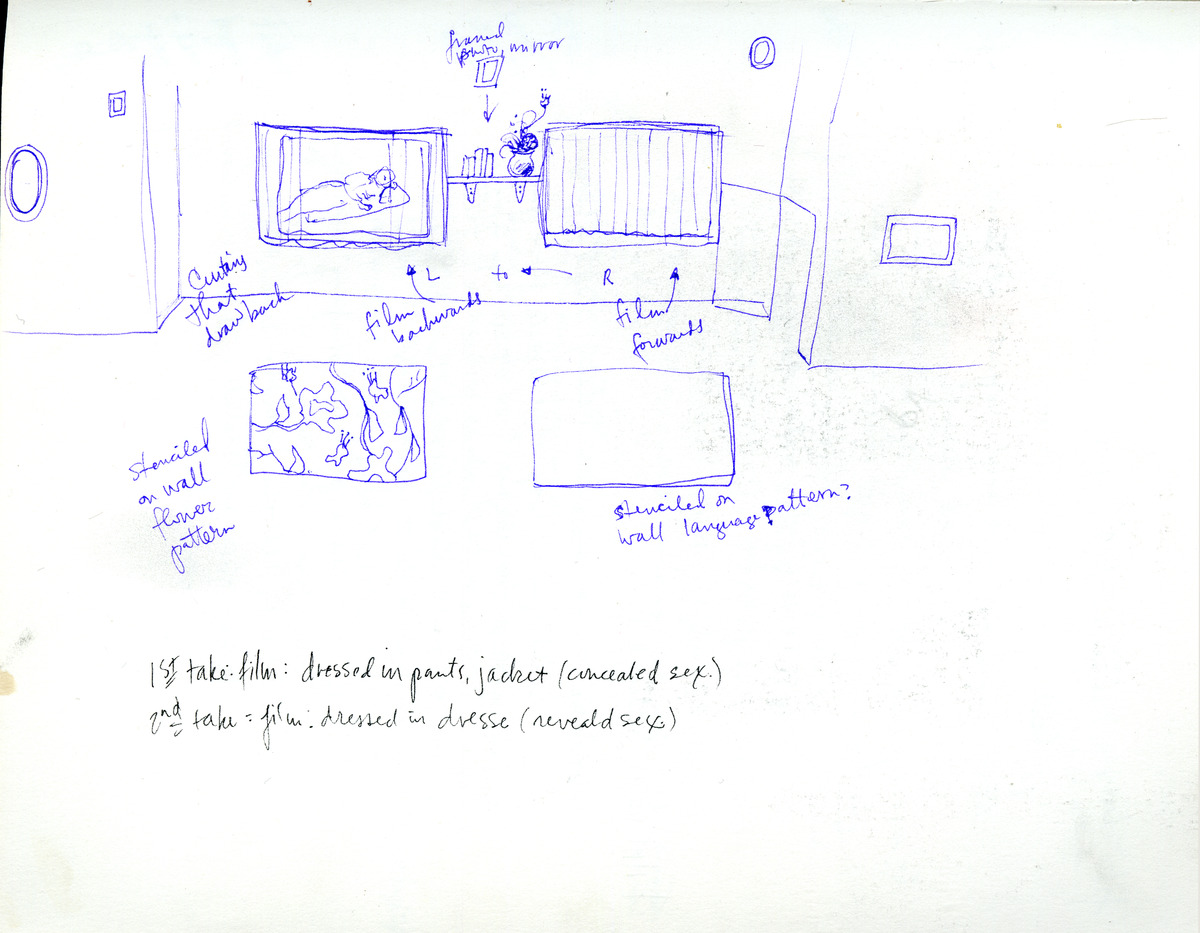 framed
photo, mirror
Curtains
that
draw back
L to R
film
backwards
film
forwards
stenciled
on wall
flower
pattern
stenciled on
wall language pattern?
1st take: film: dressed in pants, jacket (concealed sex.)
2nd take = film: dressed in dresse (reveald sex.)